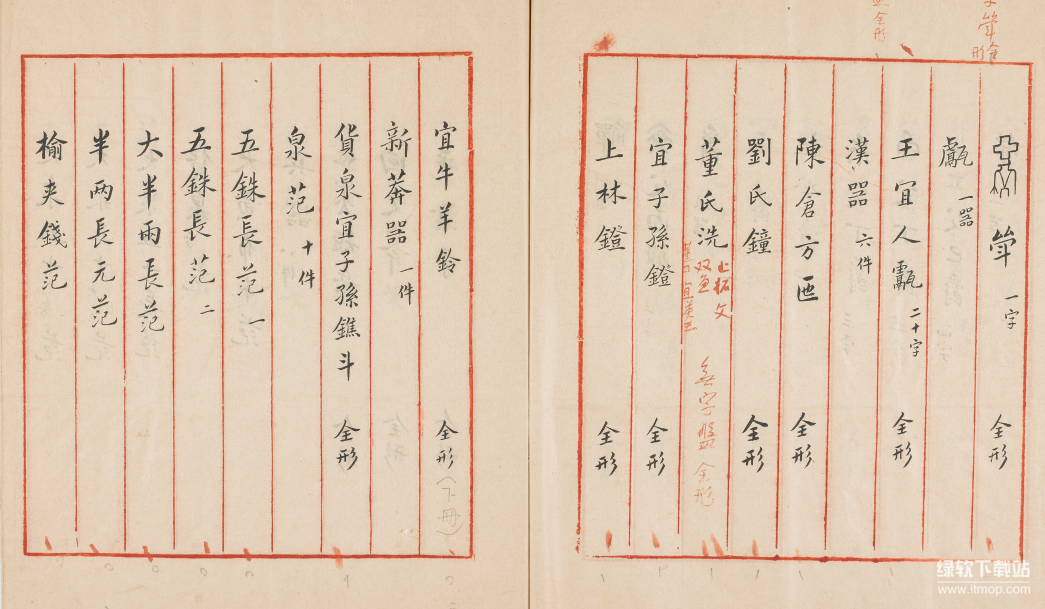 斝 一字 全形
甗 一器
王宜人甗 二十字 全形
漢器 六件
陳倉方匜 全形
劉氏鐘 全形
董氏洗
止拓文
双魚
無字盤 全形
宜子孫鐙 全形
上林鐙 全形
斝 全形
全形
宜牛羊鈴 全形(下冊)
新莽器 一件
貨泉宜子孫鐎斗 全形
泉范 十件
五銖長范 一
五銖長范 二
大半兩長范
半两長元范
榆夾錢范
绿软下载站
www.itmop.com